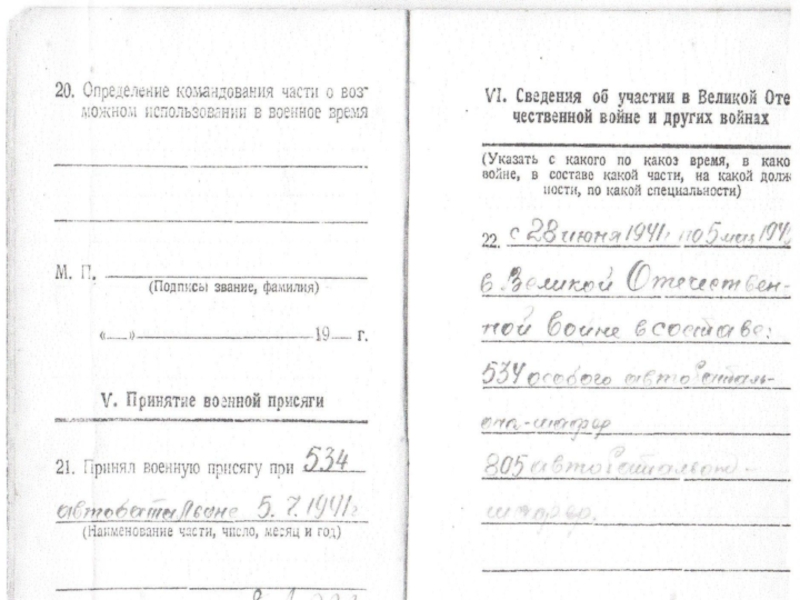 20. Определение командования части о воз-
можном использовании в военное время
М. П.
(Подписы звание, фамилия)
«—» 19— г.
V. Принятие военной присяги
21. Принял военную присягу при 534
автобатальоне 5. 7. 1941г
(Наименование части, число, месяц и год)
VI. Сведения об участии в Великой Оте
чественной войне и других войнах
(Указать с какого по какоэ время, в како
войне, в составе какой части, на какой долж
ности, по какой специальности)
22. с 28 июня 1941г. по 5 мая 194
в Великой Отечествен-
ной войне в составе:
534 особого автобаталь-
она-шофер
805 автобатальон -
шофер.